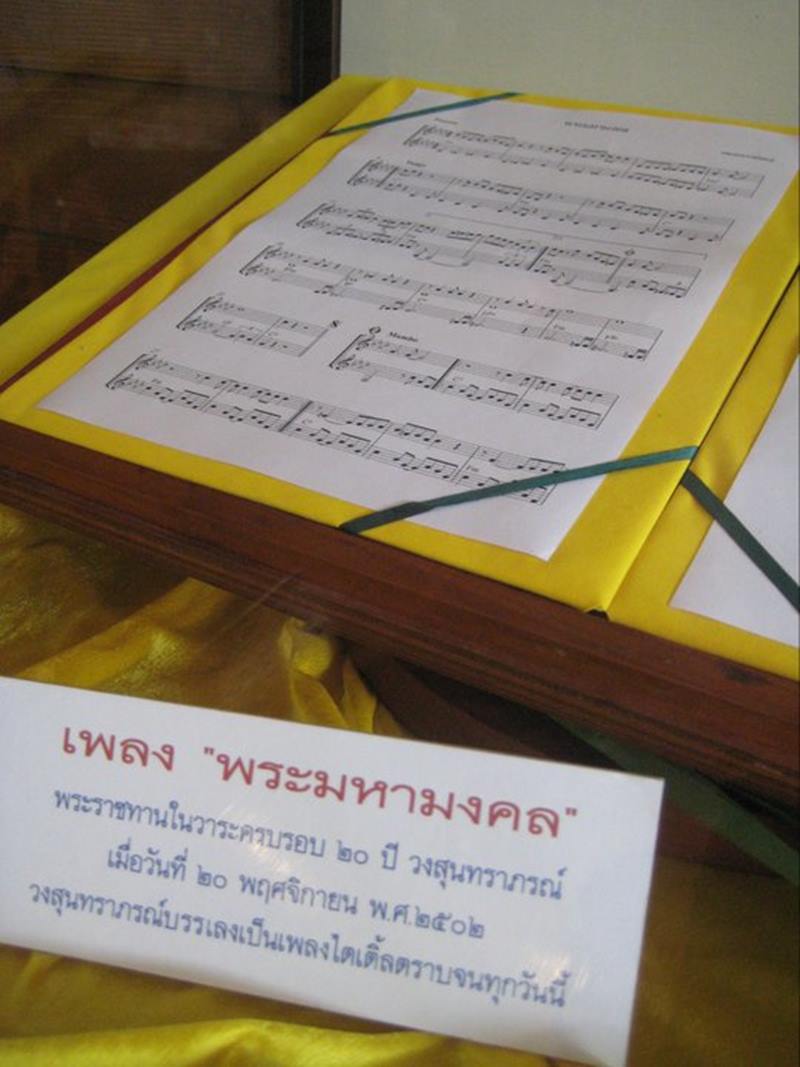 Mambo
เพลง "พระมหามงคล"
พระราชทานในวาระครบรอบ ๒๐ ปี วงสุนทราภรณ์
เมื่อวันที่ ๒๐ พฤศจิกายน พ.ศ.๒๕๐๒
วงสุนทราภรณ์บรรเลงเป็นเพลงไตเติ้ลตราบจนทุกวันนี้